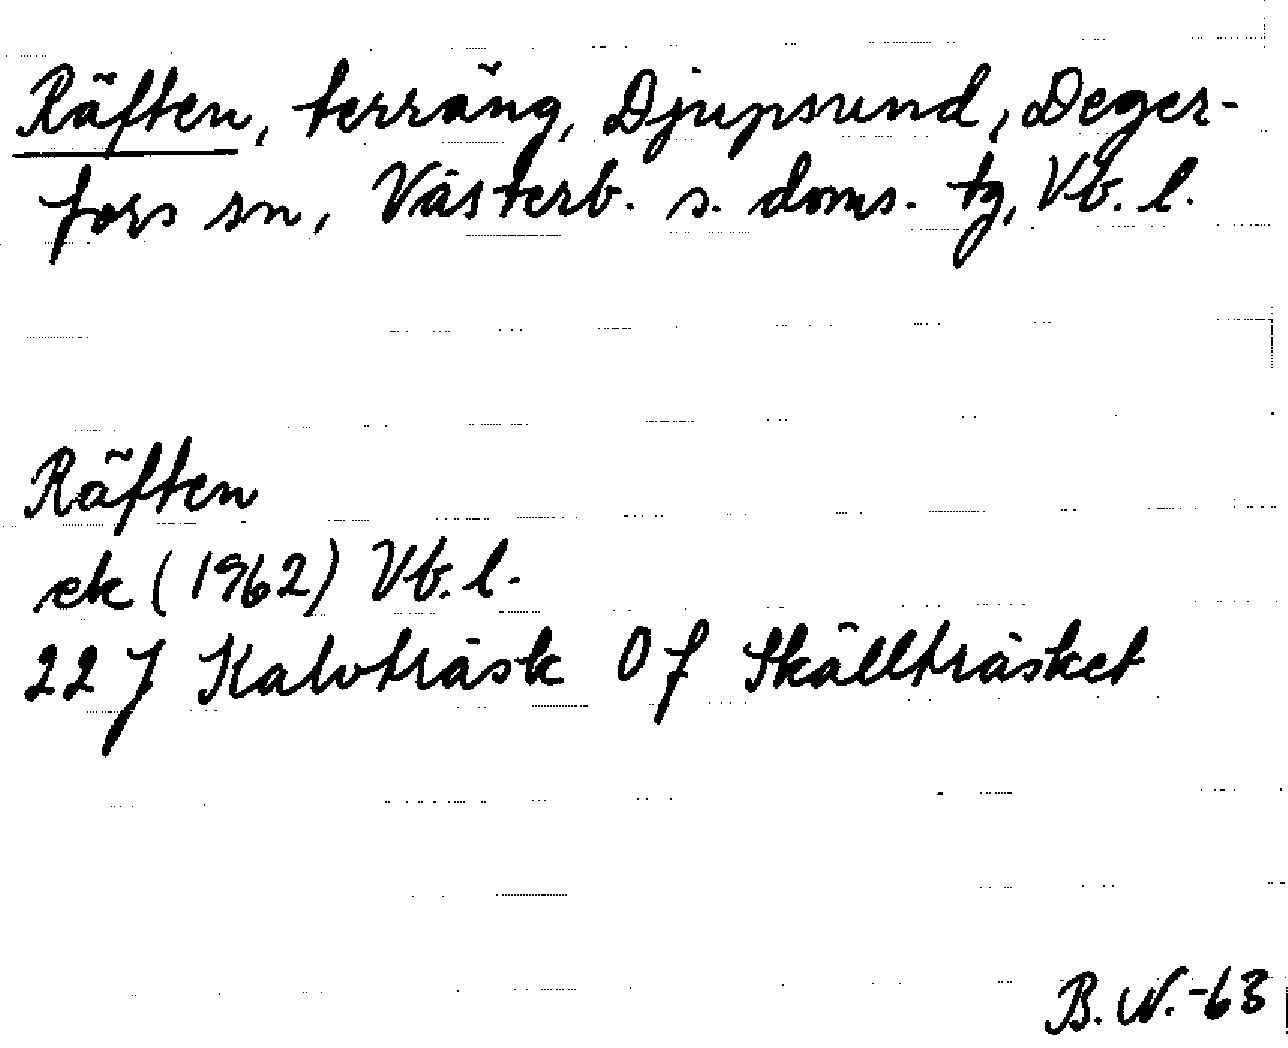 Räften, terräng, Djupsund, Deger-
fors sn, Västerb. s. doms. tg, Vb. l.
Räften
ek (1962) Vb. l.
22 J Kalvträsk 0 f Skällträsket
B. W. -63